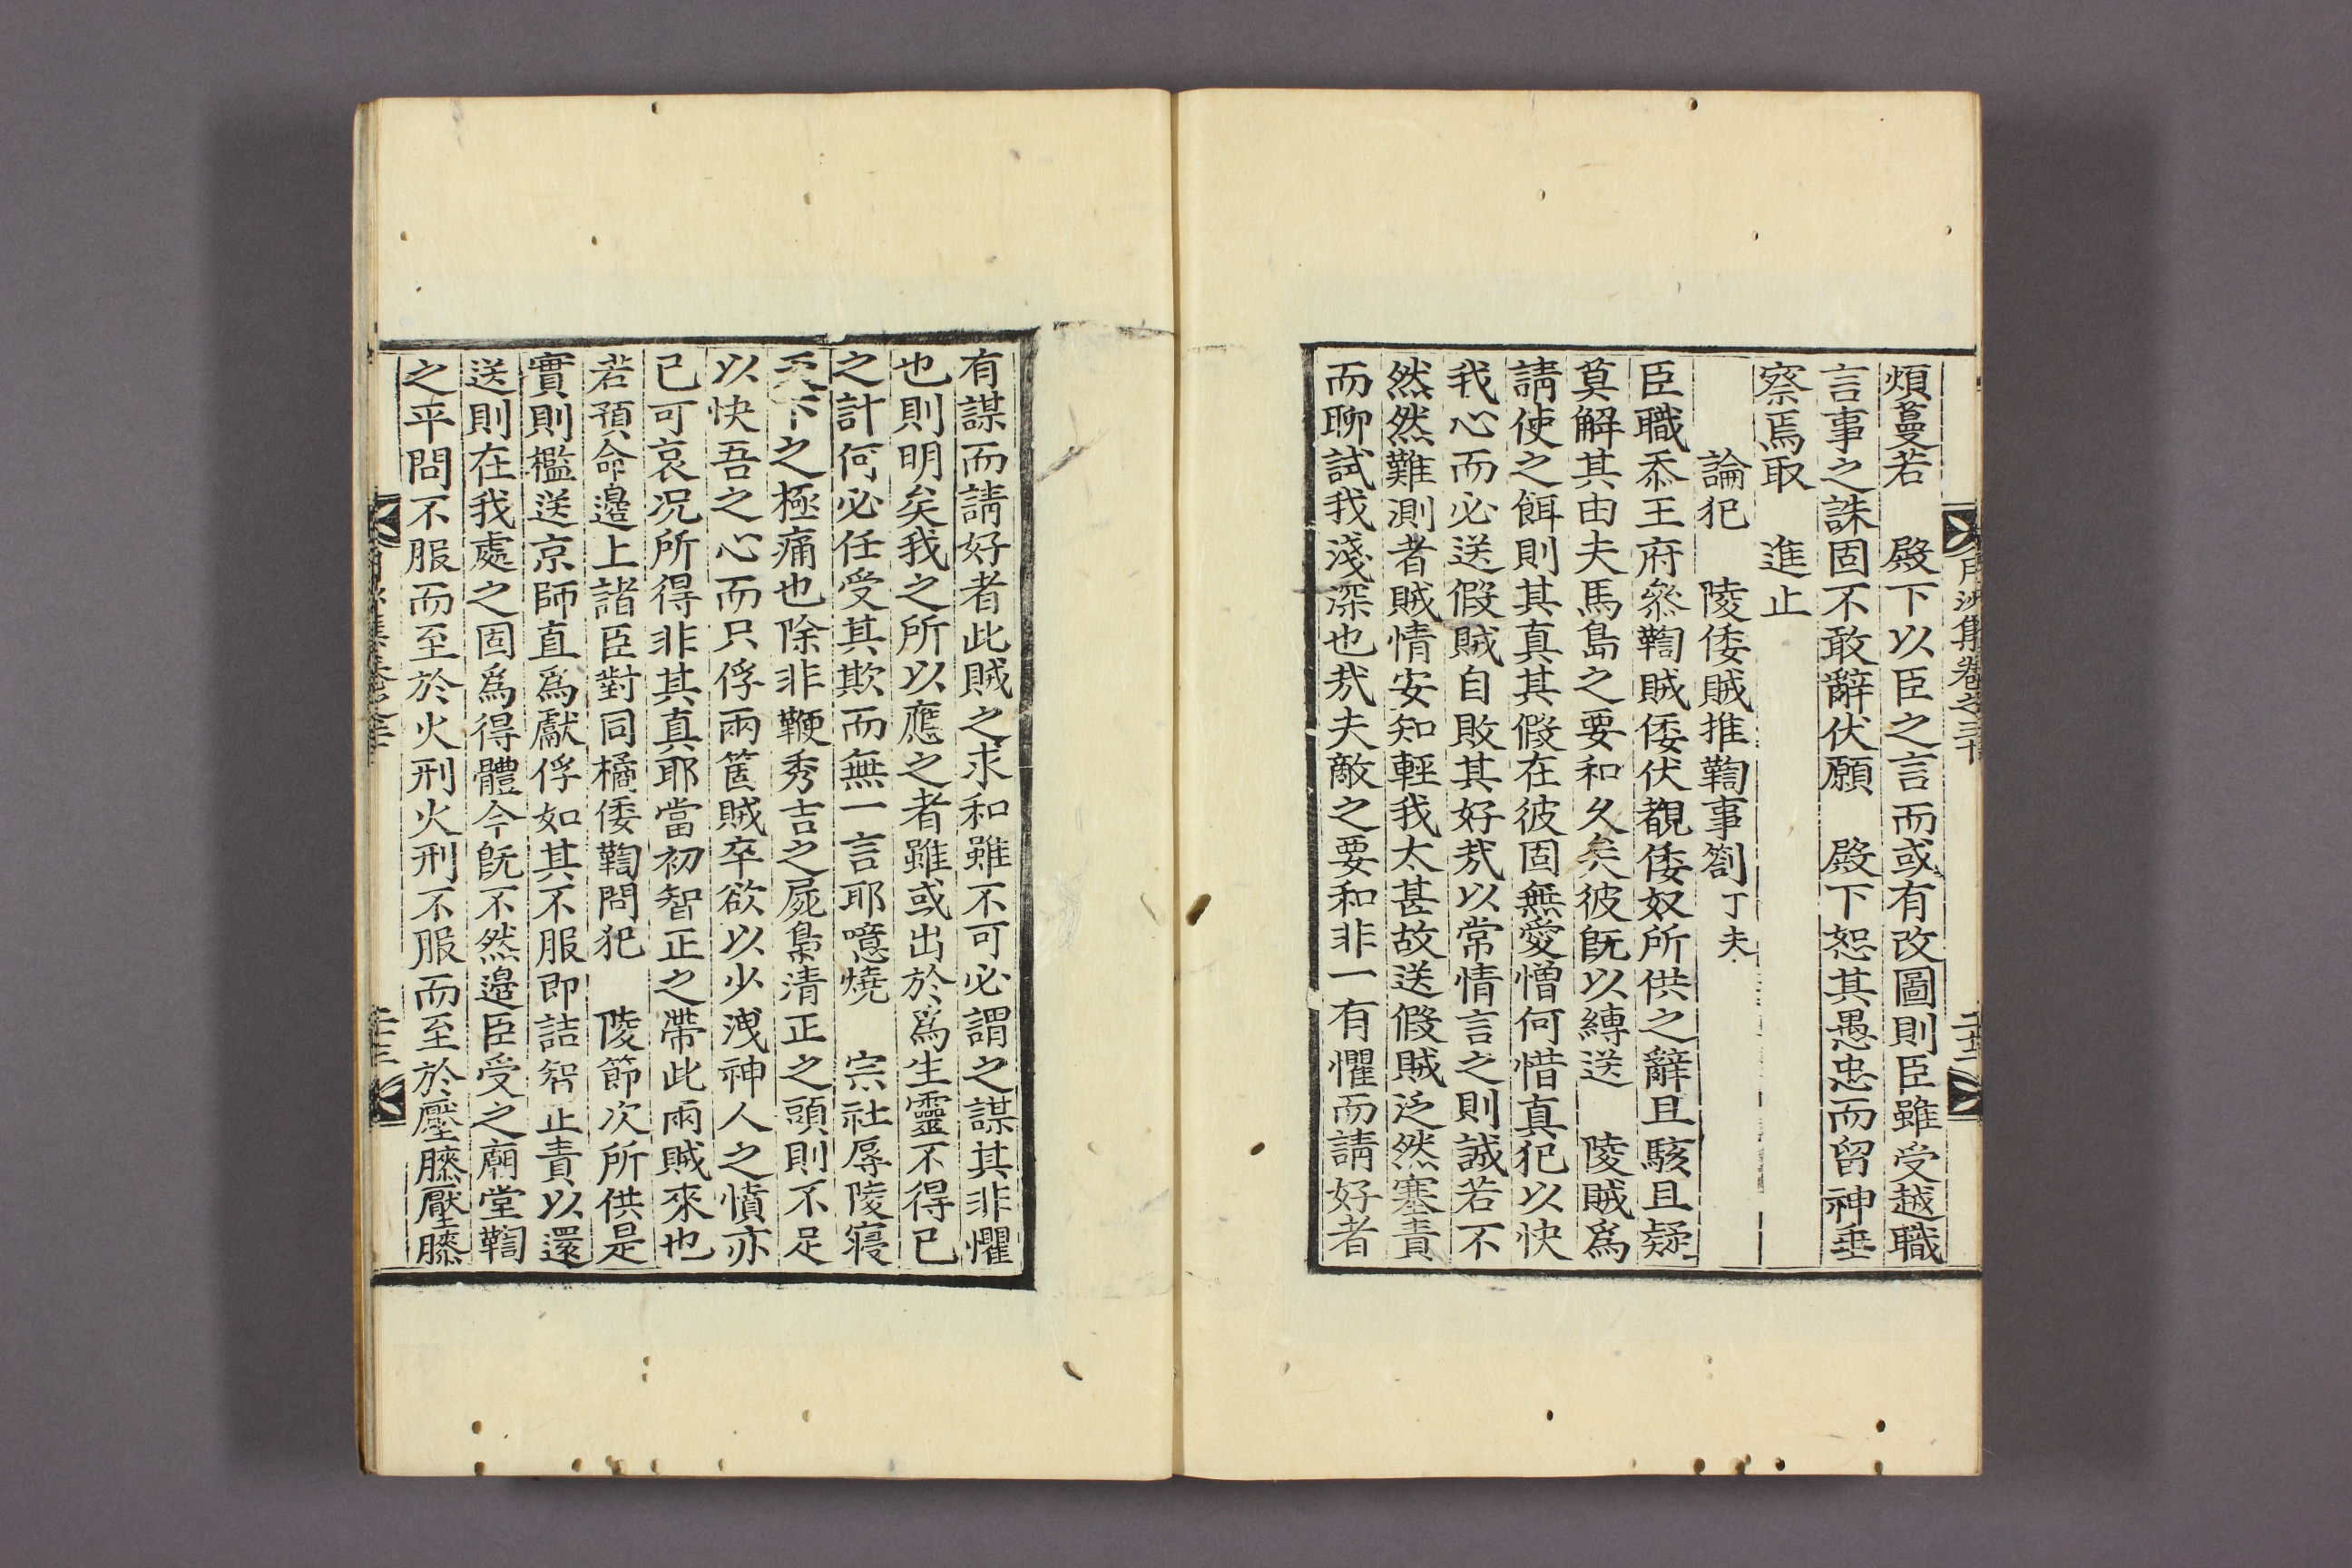 煩蔓若　殿下以臣之言而或有改圖則臣雖受越職
言事之誅固不敢辭伏願　殿下恕其愚忠而留神垂
察焉取　進止
論犯　陵倭賊推鞫事劄丁夫
臣職忝王府叅鞫賊倭伏覩倭奴所供之辭且駭且疑
莫解其由夫馬島之要和久矣彼旣以縛送　陵賊爲
請使之餌則其真其假在彼固無愛憎何惜真犯以快
我心而必送假賊自敗其好㢤以常情言之則誠若不
然然難測者賊情安知輕我太甚故送假賊泛然塞責
而聊試我淺深也㢤夫敵之要和非一有懼而請好者
有謀而請好者此賊之求和雖不可必謂之謀其非懼
也則明矣我之所以應之者雖或出於爲生靈不得已
之計何必任受其欺而無一言耶噫燒　宗社辱陵寢
天下之極痛也除非鞭秀吉之屍梟淸正之頭則不足
以快吾之心而只俘兩箇賊卒欲以少洩神人之憤亦
已可哀况所得非其真耶當初智正之帶此兩賊來也
若預命邊上諸臣對同橘倭鞫問犯　陵節次所供是
實則檻送京師直爲獻俘如其不服即詰智正責以還
送則在我處之固爲得體今旣不然邊臣受之廟堂鞫
之平問不服而至於火刑火刑不服而至於壓膝壓膝
月沙集卷之三十
二十二
二十三